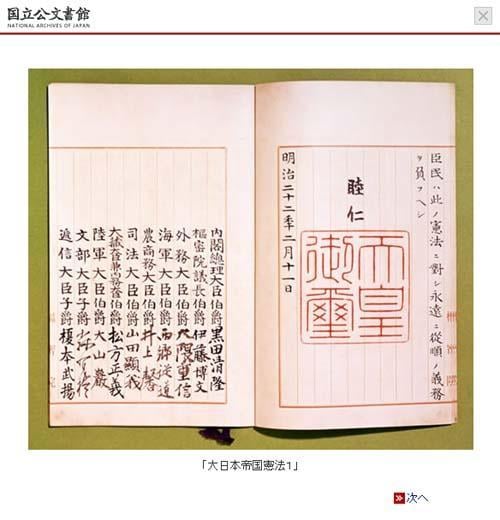 国立公文書館
NATIONAL ARCHIVES OF JAPAN
臣民ハ此ノ憲法ニ對シ永遠ニ從順ノ義務
ヲ負フヘシ
睦仁
天皇御璽
明治二十二年二月十一日
內閣總理大臣伯爵黒田清隆
樞密院議長伯爵伊藤博文
外務大臣伯爵大隈重信
海軍大臣伯爵西鄉從道
農商務大臣伯爵井上馨
司法大臣伯爵山田顯義
大藏大臣兼內務大臣伯爵松方正義
陸軍大臣伯爵大山巖
文部大臣子爵森有禮
遞信大臣子爵榎本武揚
「大日本帝国憲法1」
次へ